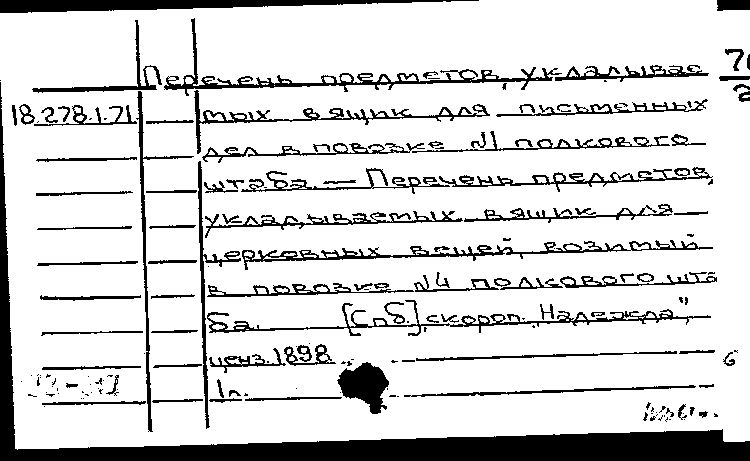 Перечень предметов, укладывае
18.278.1.71 мых в ящик для письменных
дел в повозке №1 полкового
штаба. — Перечень предметов,
укладываемых в ящик для
церковных вещей, возимый
в повозке №4 полкового шта
ба. [Спб.], скороп. "Надежда",
ценз. 1898.
1л.